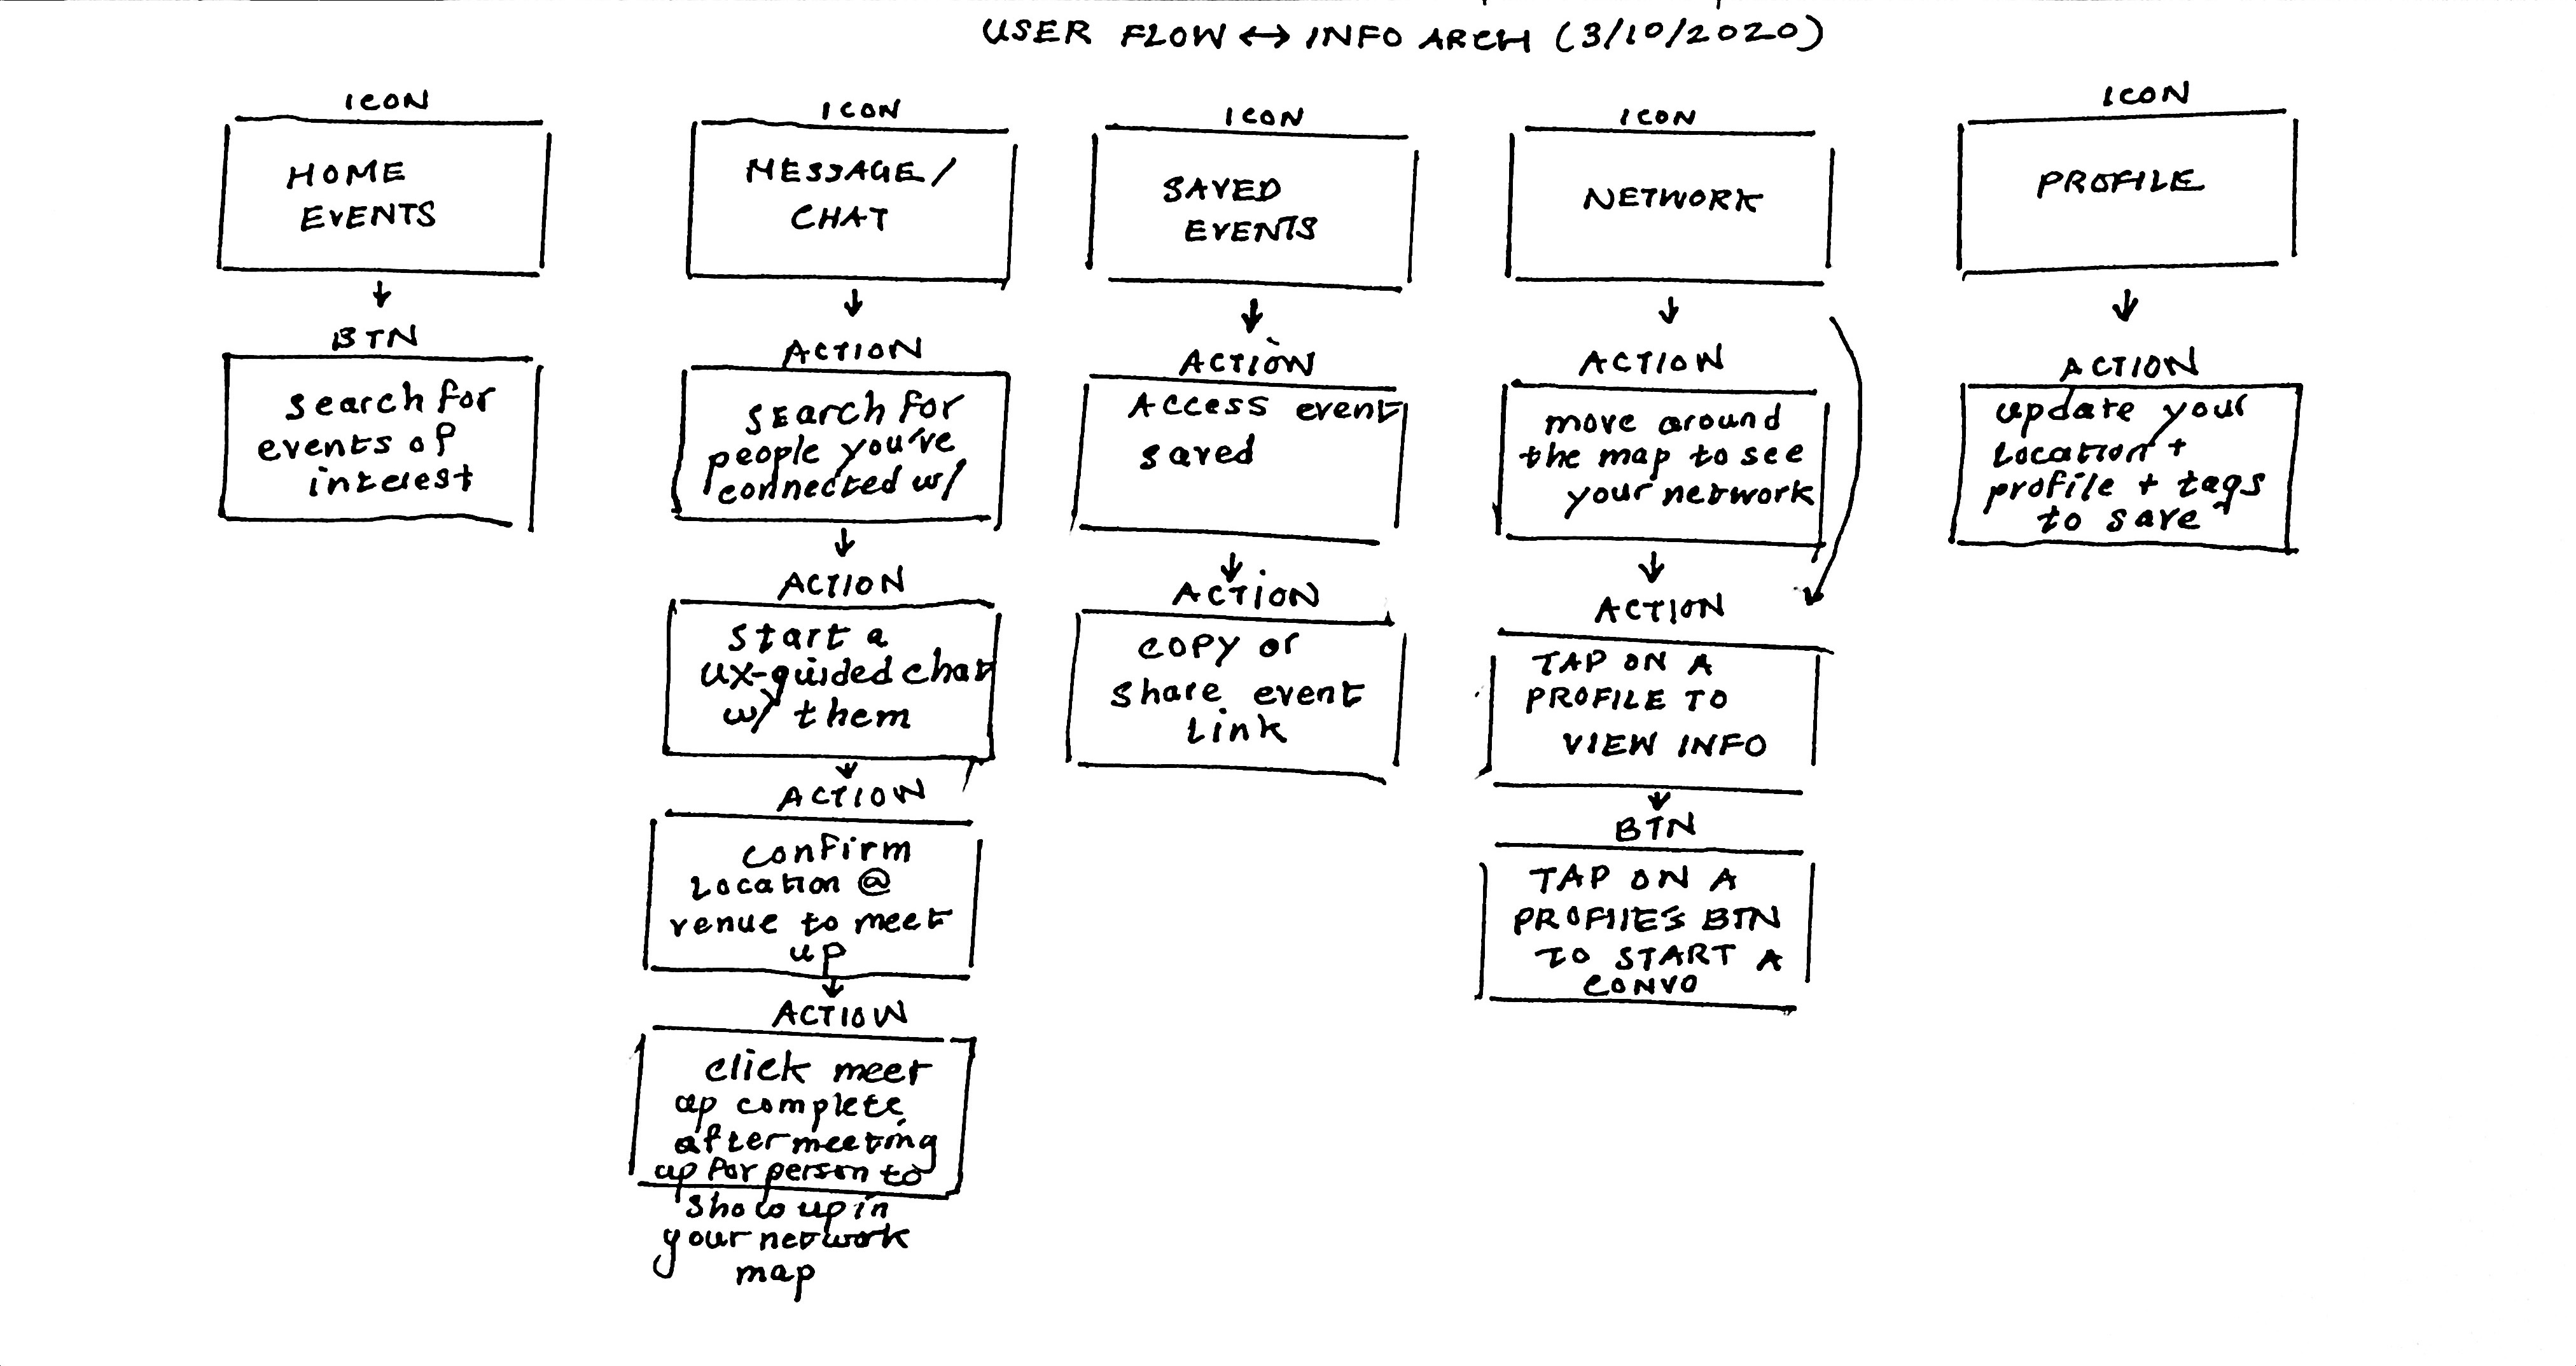 USER FLOW ↔ INFO ARCH (3/10/2020)
ICON
HOME
EVENTS
BTN
search for
events of
interest
ICON
MESSAGE/
CHAT
ACTION
SEarch for
people you've
connected w/
ACTION
start a
UX-guided chat
w/ them
ACTION
confirm
Location @
venue to meet
up
ACTION
click meet
up complete
after meeting
up for person to
show up in
your network
map
ICON
SAVED
EVENTS
ACTION
Access event
saved
ACTION
copy or
share event
link
ICON
NETWORK
ACTION
move around
the map to see
your network
ACTION
TAP ON A
PROFILE TO
VIEW INFO
BTN
TAP ON A
PROFILE'S BTN
TO START A
CONVO
ICON
PROFILE
ACTION
update your
Location +
profile + tags
to save